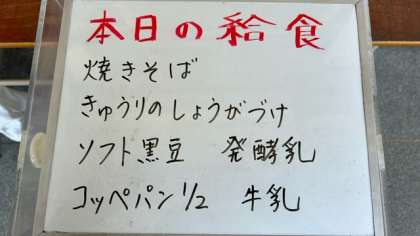 本日の給食
焼きそば
きゅうりのしょうがづけ
ソフト黒豆　発酵乳
コッペパン1/2　牛乳